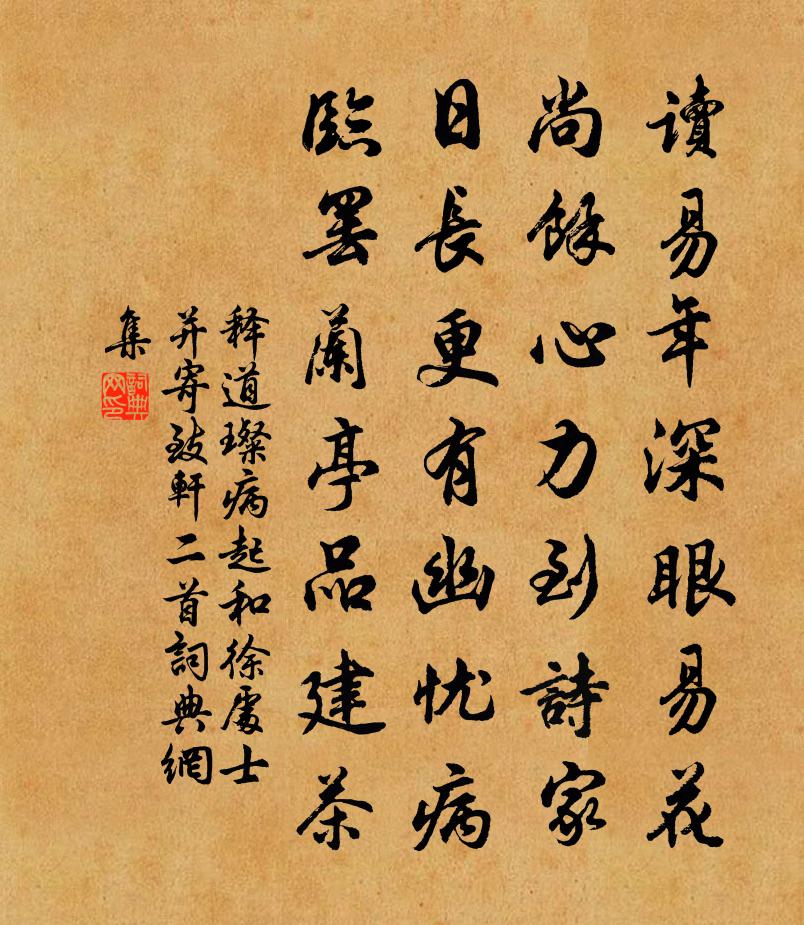 讀易年深眼易花
尚餘心力到詩家
日長更有幽忧病
臨罷蘭亭品建茶
释道璨病起和徐處士
并寄致軒二首詞典網
集
詞典
网印